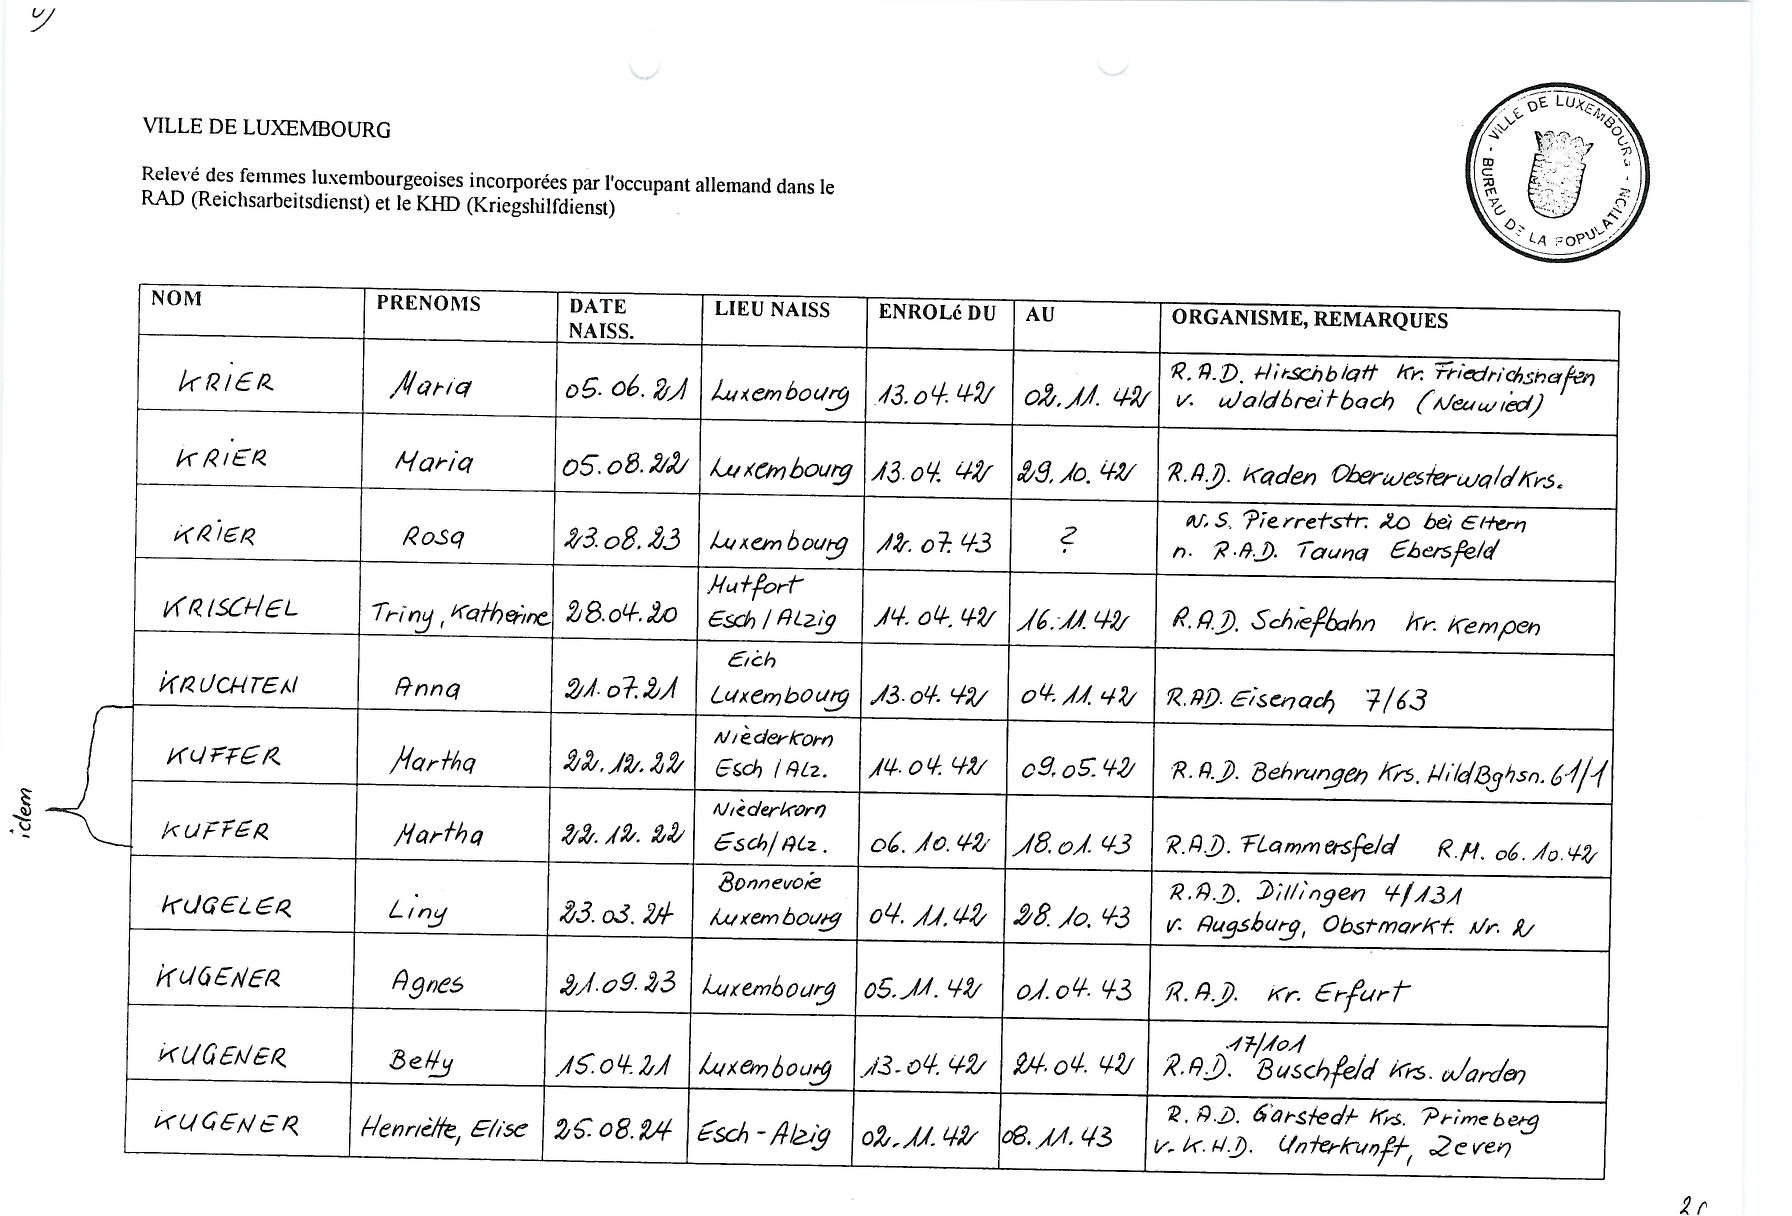 VILLE DE LUXEMBOURG
- VILLE DE LUXEMBOURG - BUREAU DE LA POPULATION
Relevé des femmes luxembourgeoises incorporées par l'occupant allemand dans le
RAD (Reichsarbeitsdienst) et le KHD (Kriegshilfdienst)
NOM PRENOMS DATE NAISS. LIEU NAISS ENROLé DU AU ORGANISME, REMARQUES
KRIER Maria 05.06.21 Luxembourg 13.04.42 02.11.42 R.A.D. Hirschblatt Kr. Friedrichshafen
v. Waldbreitbach (Neuwied)
KRIER Maria 05.08.22 Luxembourg 13.04.42 29.10.42 R.A.D. Kaden Oberwesterwald Krs.
KRIER Rosa 23.08.23 Luxembourg 12.07.43 ? w.S. Pierretstr. 20 bei Eltern
n. R.A.D. Tauna Ebersfeld
KRISCHEL Triny, Katherine 28.04.20 Mutfort
Esch/Alzig 14.04.42 16.11.42 R.A.D. Schiefbahn Kr. Kempen
KRUCHTEN Anna 21.07.21 Eich
Luxembourg 13.04.42 04.11.42 R.AD. Eisenach 7/63
idem
KUFFER Martha 22.12.22 Niederkorn
Esch/Alz. 14.04.42 09.05.42 R.A.D. Behrungen Krs. HildBghsn. 61/1
KUFFER Martha 22.12.22 Niederkorn
Esch/Alz. 06.10.42 18.01.43 R.A.D. Flammersfeld R.M. 06.10.42
KUGELER Liny 23.03.24 Bonnevoie
Luxembourg 04.11.42 28.10.43 R.A.D. Dillingen 4/131
v. Augsburg, Obstmarkt. Nr. 2
KUGENER Agnes 21.09.23 Luxembourg 05.11.42 01.04.43 R.A.D. Kr. Erfurt
KUGENER Betty 15.04.21 Luxembourg 13.04.42 24.04.42 17/101
R.A.D. Buschfeld Krs. Warden
KUGENER Henriette, Elise 25.08.24 Esch-Alzig 02.11.42 08.11.43 R.A.D. Garstedt Krs. Primeberg
v. K.H.D. Unterkunft, Zeven